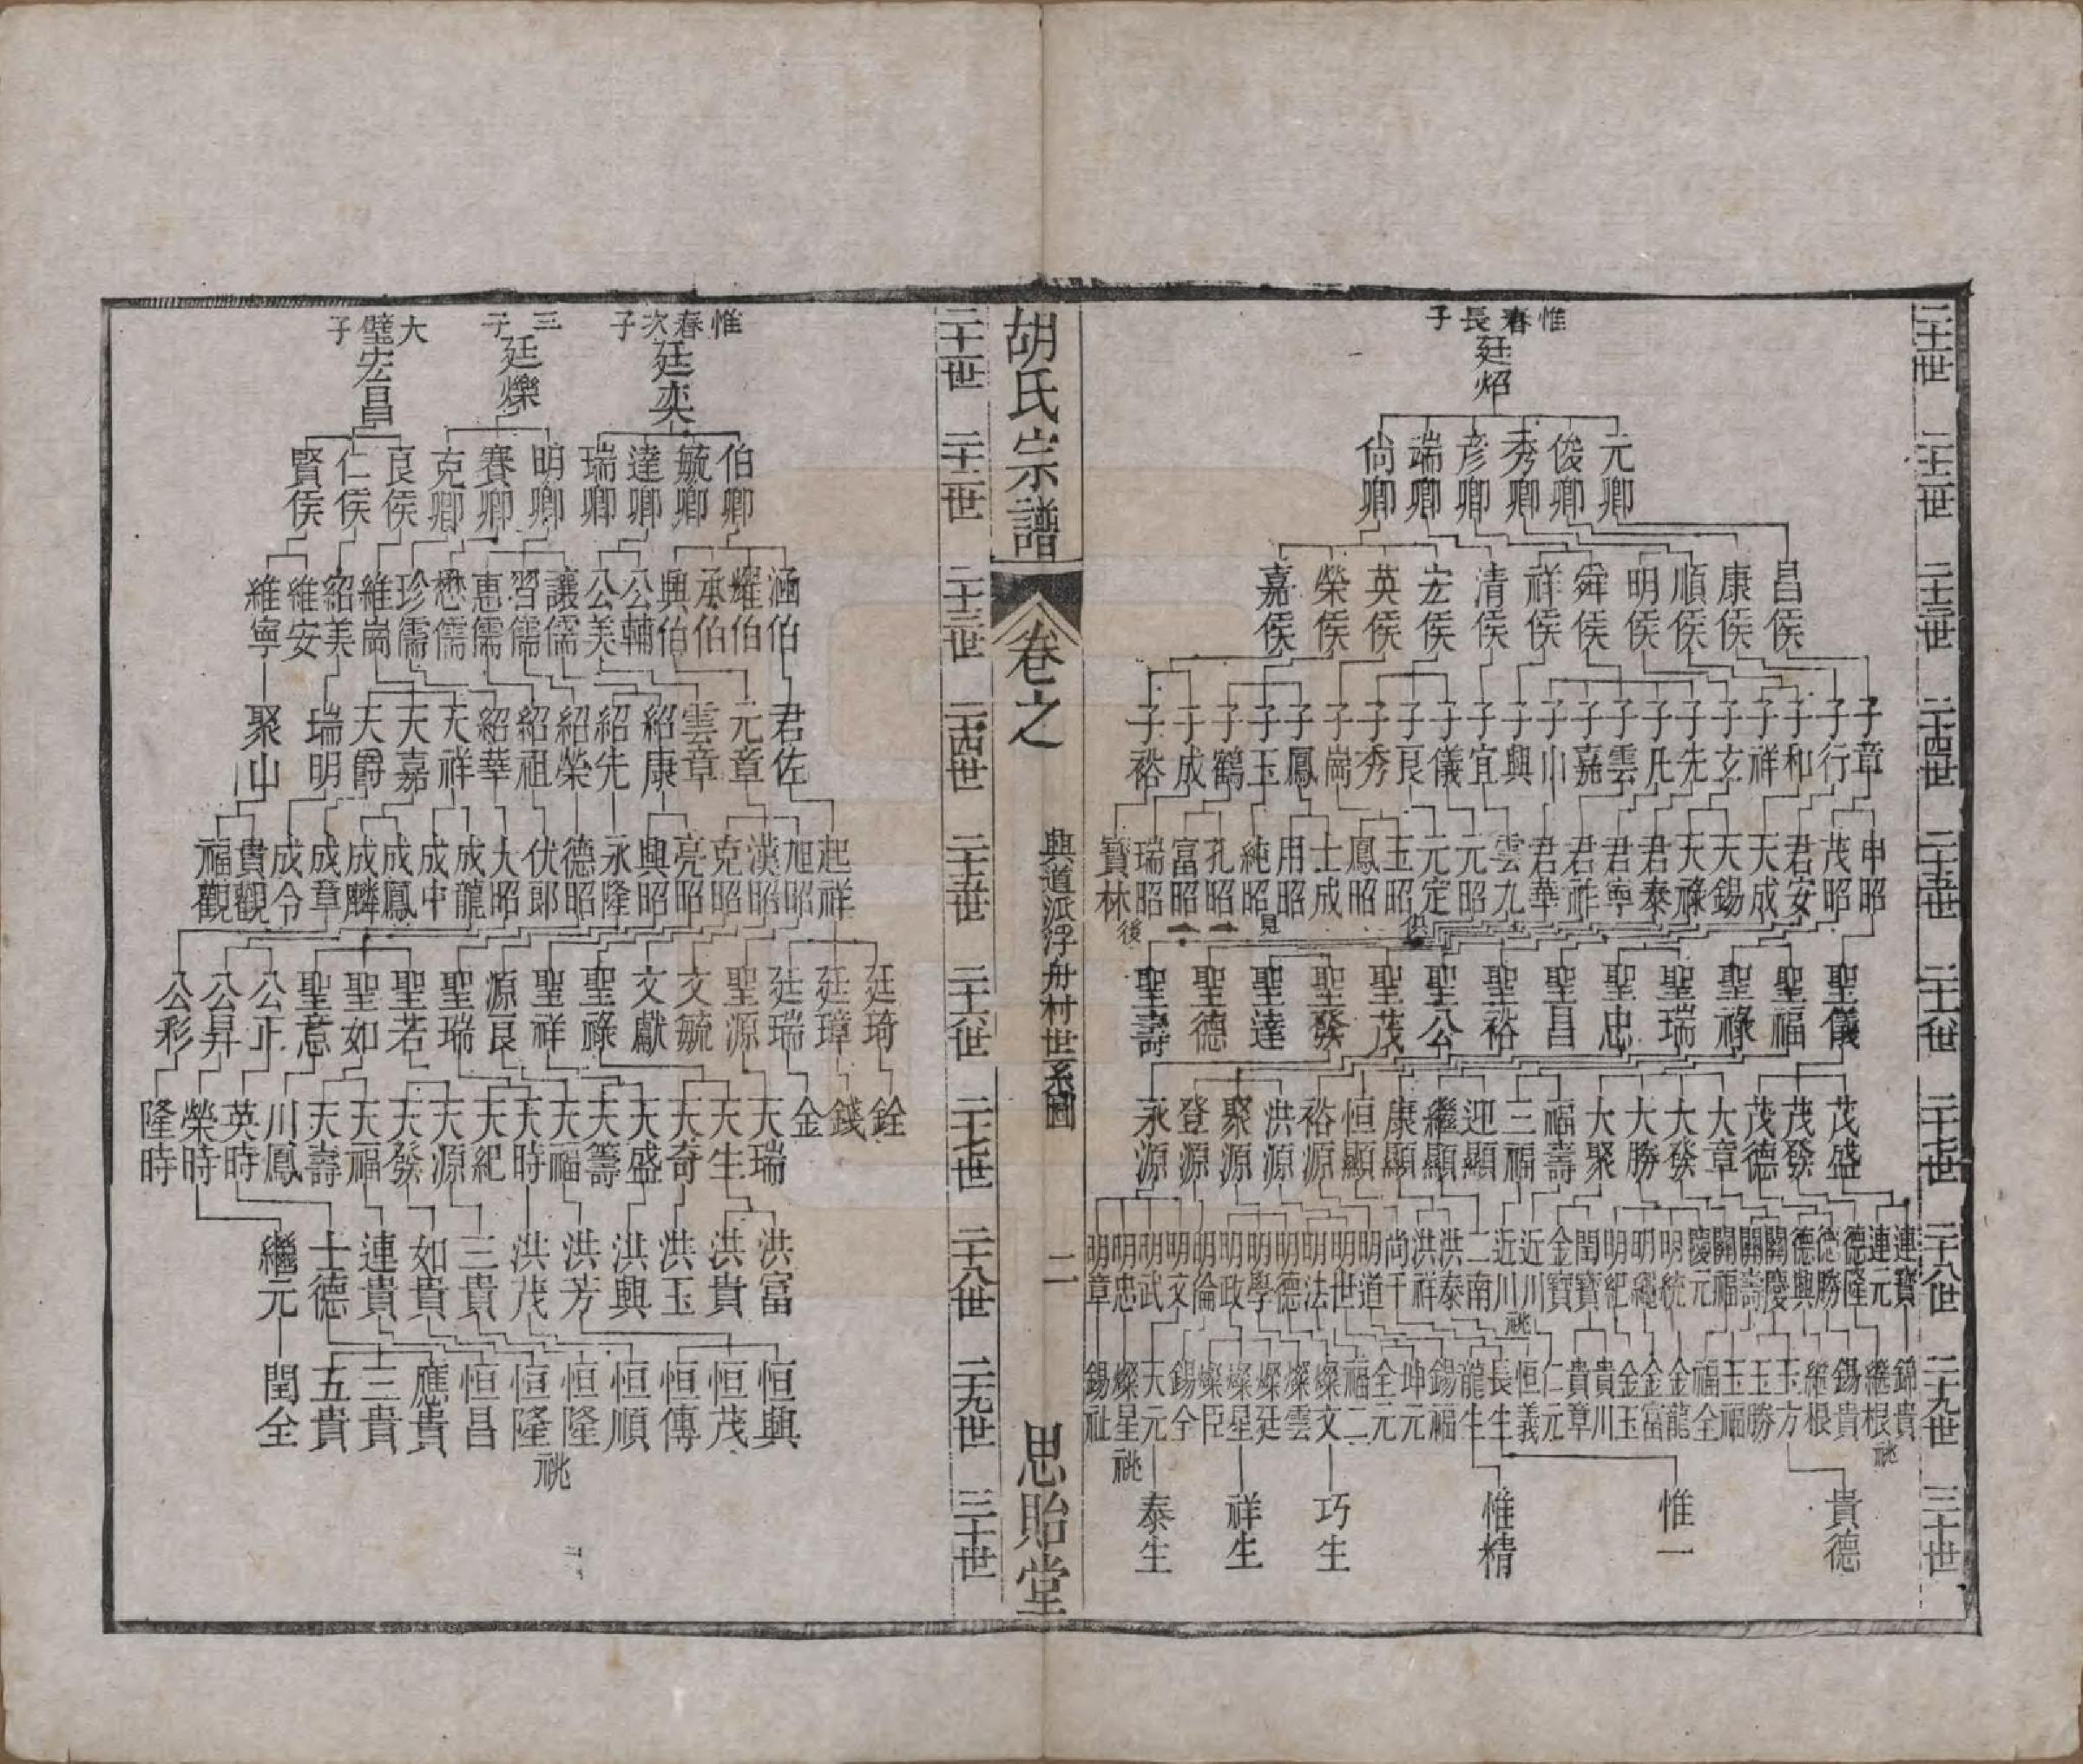 二十一世 二十二世 二十三世 二十四世 二十五世 二十六世 二十七世 二十八世 二十九世 三十世
惟春長子 廷炤
元卿 俊卿 秀卿 彦卿 端卿 尙卿
昌侯 康侯 順侯 明侯 舜侯 祥侯 清侯 宏侯 英侯 榮侯 嘉侯
子章 子行 子和 子祥 子玄 子先 子凡 子雲 子嘉 子小 子興 子宜 子儀 子良 子秀 子崗 子鳳 子玉 子鶴 子成 子裕
申昭 茂昭 君安 天成 天錫 天祿 君泰 君寧 君祚 君華 雲九 元昭 元定 玉昭 鳳昭 士成 用昭 純昭 孔昭 富昭 瑞昭 寶林
俱見二一後
聖儀 聖福 聖祿 聖瑞 聖忠 聖昌 聖裕 聖公 聖茂 聖發 聖達 聖德 聖壽
茂盛 茂發 茂德 大章 大發 大勝 大聚 福壽 三福 迎顯 繼顯 康顯 恒顯 裕源 洪源 聚源 登源 永源
連寶 連元 德隆 德勝 德興 關慶 關壽 關福 慶元 明統 明繩 明紀 閏寶 金寶 近川 近川 二南 洪泰 洪祥 尙千 明道 明世 明法 明德 明學 明政 明倫 明文 明武 明忠 明章
祧
錦貴 繼根 錫貴 繼根 玉方 玉勝 玉福 福全 金龍 金富 金玉 貴川 貴章 仁元 恒義 長生 龍生 錫福 坤元 全元 福二 燦文 燦雲 燦廷 燦星 燦臣 錫全 天元 燦星 錫祉
祧 祧
貴德 惟一 惟精 巧生 祥生 泰生
胡氏宗譜
卷之
興道派浮舟村世系圖
二
思貽堂
二十一世 二十二世 二十三世 二十四世 二十五世 二十六世 二十七世 二十八世 二十九世 三十世
惟春次子 廷奕 三子 廷爍 大璧子 宏昌
伯卿 毓卿 達卿 瑞卿 明卿 賽卿 克卿 良侯 仁侯 賢侯
涵伯 耀伯 承伯 興伯 公輔 公美 讓儒 習儒 惠儒 懋儒 珍儒 維崗 紹美 維安 維寧
君佐 元章 雲章 紹康 紹先 紹榮 紹祖 紹華 天祥 天嘉 天爵 瑞明 聚山
起祥 旭昭 漢昭 克昭 亮昭 興昭 永隆 德昭 伏郎 大昭 成龍 成中 成鳳 成麟 成章 成令 貴觀 福觀
廷琦 廷璋 廷瑞 聖源 文毓 文獻 聖祿 聖祥 源良 聖瑞 聖若 聖如 聖意 公正 公昇 公彩
銓 錢 金 天瑞 大生 大奇 大盛 天籌 天福 大時 天紀 天源 天發 天福 天壽 川鳳 英時 榮時 隆時
洪富 洪貴 洪玉 洪興 洪芳 洪茂 三貴 如貴 連貴 士德 繼元
恒興 恒茂 恒傳 恒順 恒隆 恒隆 恒昌 應貴 三貴 五貴 閏全
祧